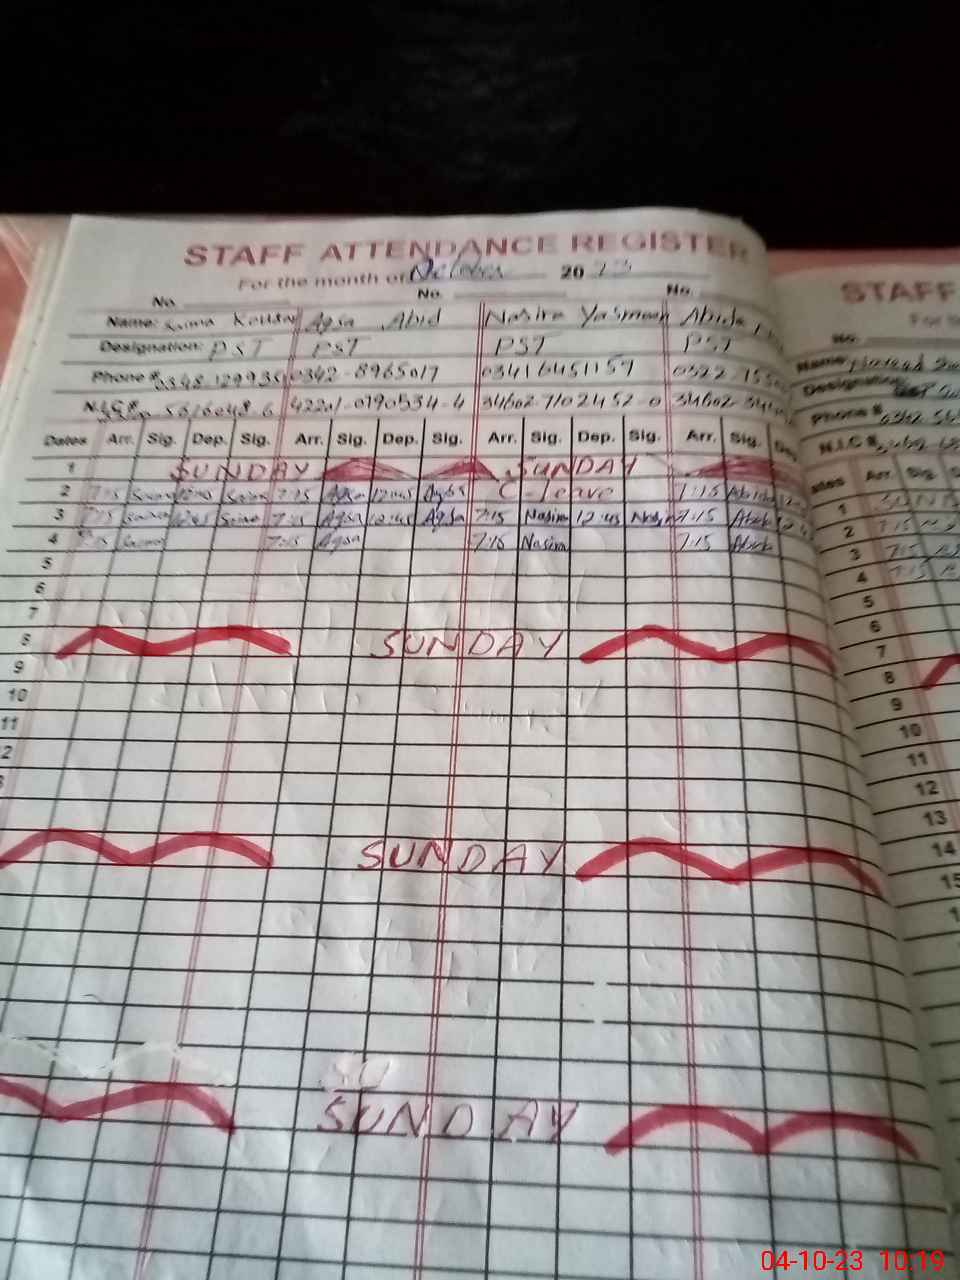 STAFF ATTENDANCE REGISTER
For the month of October 2023
No. No. No.
Name: Kousar Aqsa Abid Nasira Yasmeen Abida
Designation: PST PST PST PST
Phone # 0342-8965017 03416451159 0322-
N.I.C # 42201-0790534-4 34602-7102452-0 34602-
Dates Arr. Sig. Dep. Sig. Arr. Sig. Dep. Sig. Arr. Sig. Dep. Sig. Arr. Sig. De
1 SUNDAY SUNDAY
2 7:15 12:45 7:15 Aqsa 12:45 Aqsa C-leave 7:15 Abida
3 7:15 12:45 7:15 Aqsa 12:45 Aqsa 7:15 Nasira 12:45 Nasira 7:15 Abida
4 7:15 7:15 Aqsa 7:15 Nasira 7:15 Abida
5
6
7
8 SUNDAY
9
10
11
2
3
SUNDAY
SUNDAY
STAFF
No.
Name
Designation
Phone #
N.I.C #
ates Arr. Sig
1
2 7:15
3 7:15
4 7:15
5
6
7
8
9
10
11
12
13
14
15
04-10-23 10:19